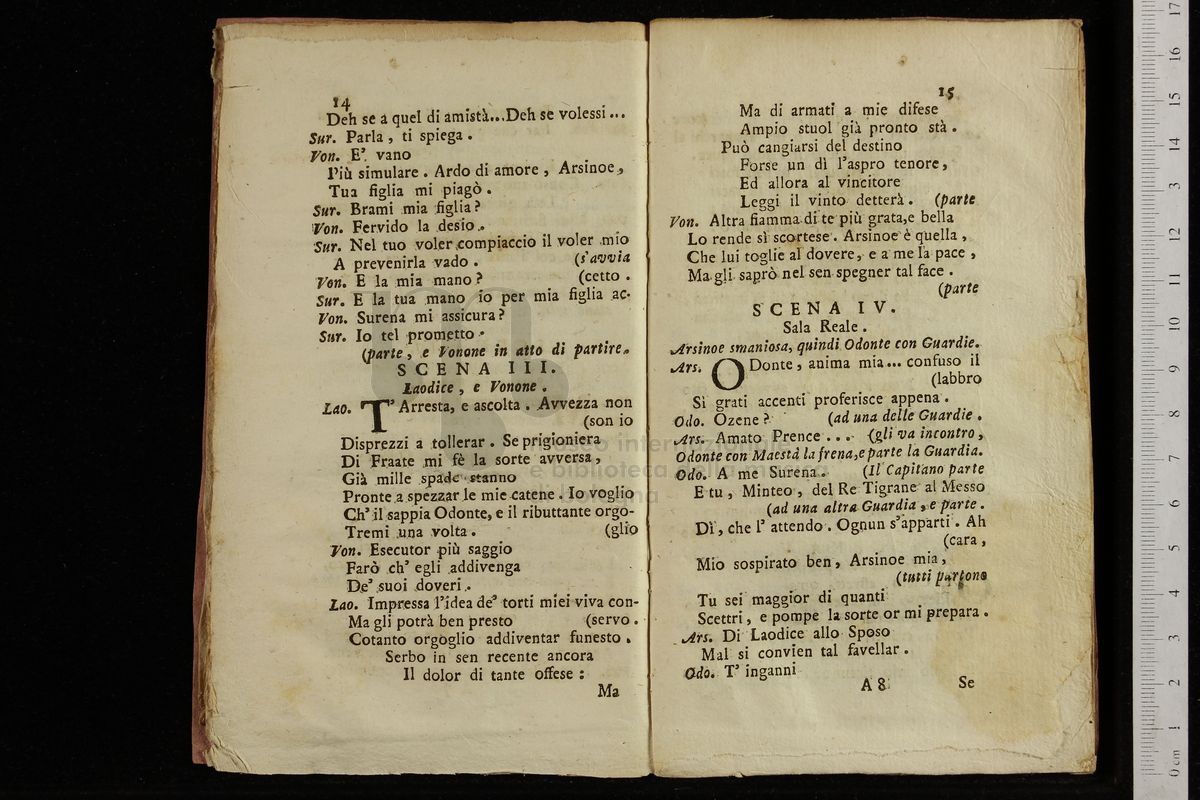 14
Deh se a quel di amistà...Deh se volessi...
Sur. Parla, ti spiega.
Von. E' vano
Più simulare. Ardo di amore, Arsinoe,
Tua figlia mi piagò.
Sur. Brami mia figlia?
Von. Fervido la desio.
Sur. Nel tuo voler compiaccio il voler mio
A prevenirla vado. (s'avvia
Von. E la mia mano? (cetto.
Sur. E la tua mano io per mia figlia ac-
Von. Surena mi assicura?
Sur. Io tel prometto.
(parte, e Vonone in atto di partire.
SCENA III.
Laodice, e Vonone.
Lao. T'Arresta, e ascolta. Avvezza non
(son io
Disprezzi a tollerar. Se prigioniera
Di Fraate mi fè la sorte avversa,
Già mille spade stanno
Pronte a spezzar le mie catene. Io voglio
Ch' il sappia Odonte, e il ributtante orgo-
Tremi una volta. (glio
Von. Esecutor più saggio
Farò ch' egli addivenga
De' suoi doveri.
Lao. Impressa l'idea de' torti miei viva con-
Ma gli potrà ben presto (servo.
Cotanto orgoglio addiventar funesto.
Serbo in sen recente ancora
Il dolor di tante offese:
Ma
15
Ma di armati a mie difese
Ampio stuol già pronto stà.
Può cangiarsi del destino
Forse un dì l'aspro tenore,
Ed allora al vincitore
Leggi il vinto detterà. (parte
Von. Altra fiamma di te più grata,e bella
Lo rende sì scortese. Arsinoe è quella,
Che lui toglie al dovere, e a me la pace,
Ma gli saprò nel sen spegner tal face.
(parte
SCENA IV.
Sala Reale.
Arsinoe smaniosa, quindi Odonte con Guardie.
Ars. ODonte, anima mia... confuso il
(labbro
Sì grati accenti proferisce appena.
Odo. Ozene? (ad una delle Guardie.
Ars. Amato Prence... (gli va incontro,
Odonte con Maestà la frena,e parte la Guardia.
Odo. A me Surena. (Il Capitano parte
E tu, Minteo, del Re Tigrane al Messo
(ad una altra Guardia, e parte.
Dì, che l' attendo. Ognun s'apparti. Ah
(cara,
Mio sospirato ben, Arsinoe mia,
(tutti partono
Tu sei maggior di quanti
Scettri, e pompe la sorte or mi prepara.
Ars. Di Laodice allo Sposo
Mal si convien tal favellar.
Odo. T' inganni
A 8 Se